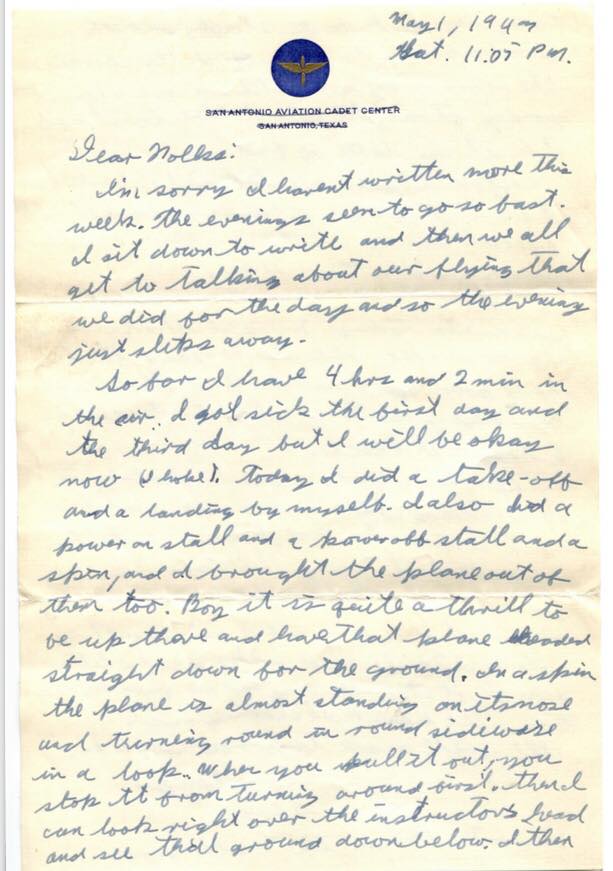 May 1, 1943
Sat. 11:05 P.M.
SAN ANTONIO AVIATION CADET CENTER
SAN ANTONIO, TEXAS
Dear Folks:
I'm sorry I havent written more this
week. The evenings seem to go so fast.
I sit down to write and then we all
get to talking about our flying that
we did for the day and so the evening
just slips away.
So far I have 4 hrs and 2 min in
the air. I got sick the first day and
the third day but I will be okay
now (I hope). Today I did a take-off
and a landing by myself. I also did a
power on stall and a power off stall and a
spin, and I brought the plane out of
them too. Boy it is quite a thrill to
be up there and have that plane headed
straight down for the ground. In a spin
the plane is almost standing on its nose
and turning round in round sideways
in a loop. When you pull it out, you
stop it from turning around first. then I
can look right over the instructors head
and see that ground down below. I then